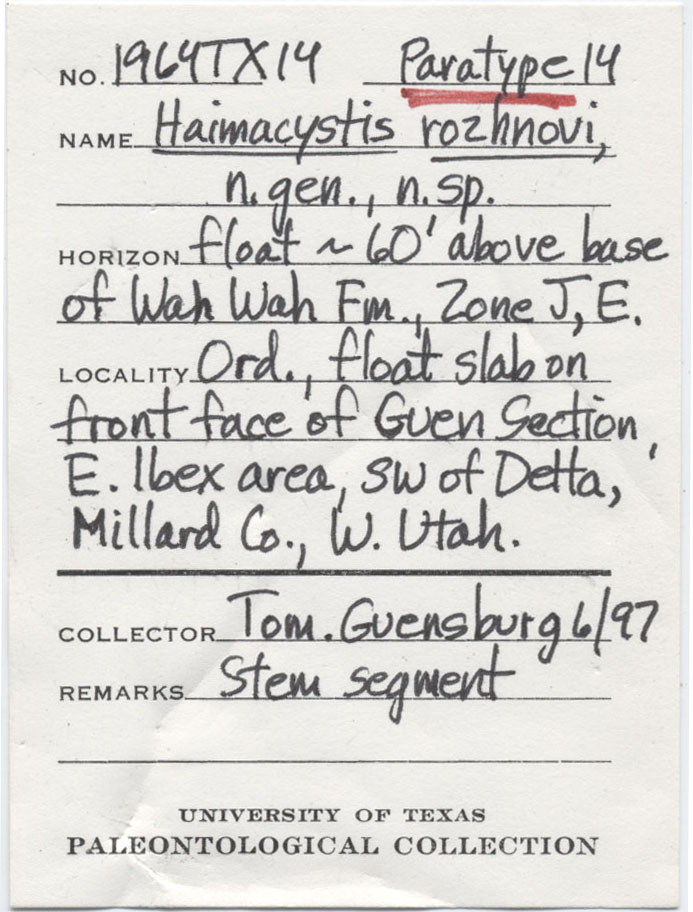 NO. 1964TX14 Paratype 14
NAME Haimacystis rozhnovi,
n. gen., n. sp.
HORIZON float ~ 60' above base
of Wah Wah Fm., Zone J, E.
LOCALITY Ord., float slab on
front face of Guen Section,
E. Ibex area, SW of Delta,
Millard Co., W. Utah.
COLLECTOR Tom. Guensburg 6/97
REMARKS Stem segment
UNIVERSITY OF TEXAS
PALEONTOLOGICAL COLLECTION